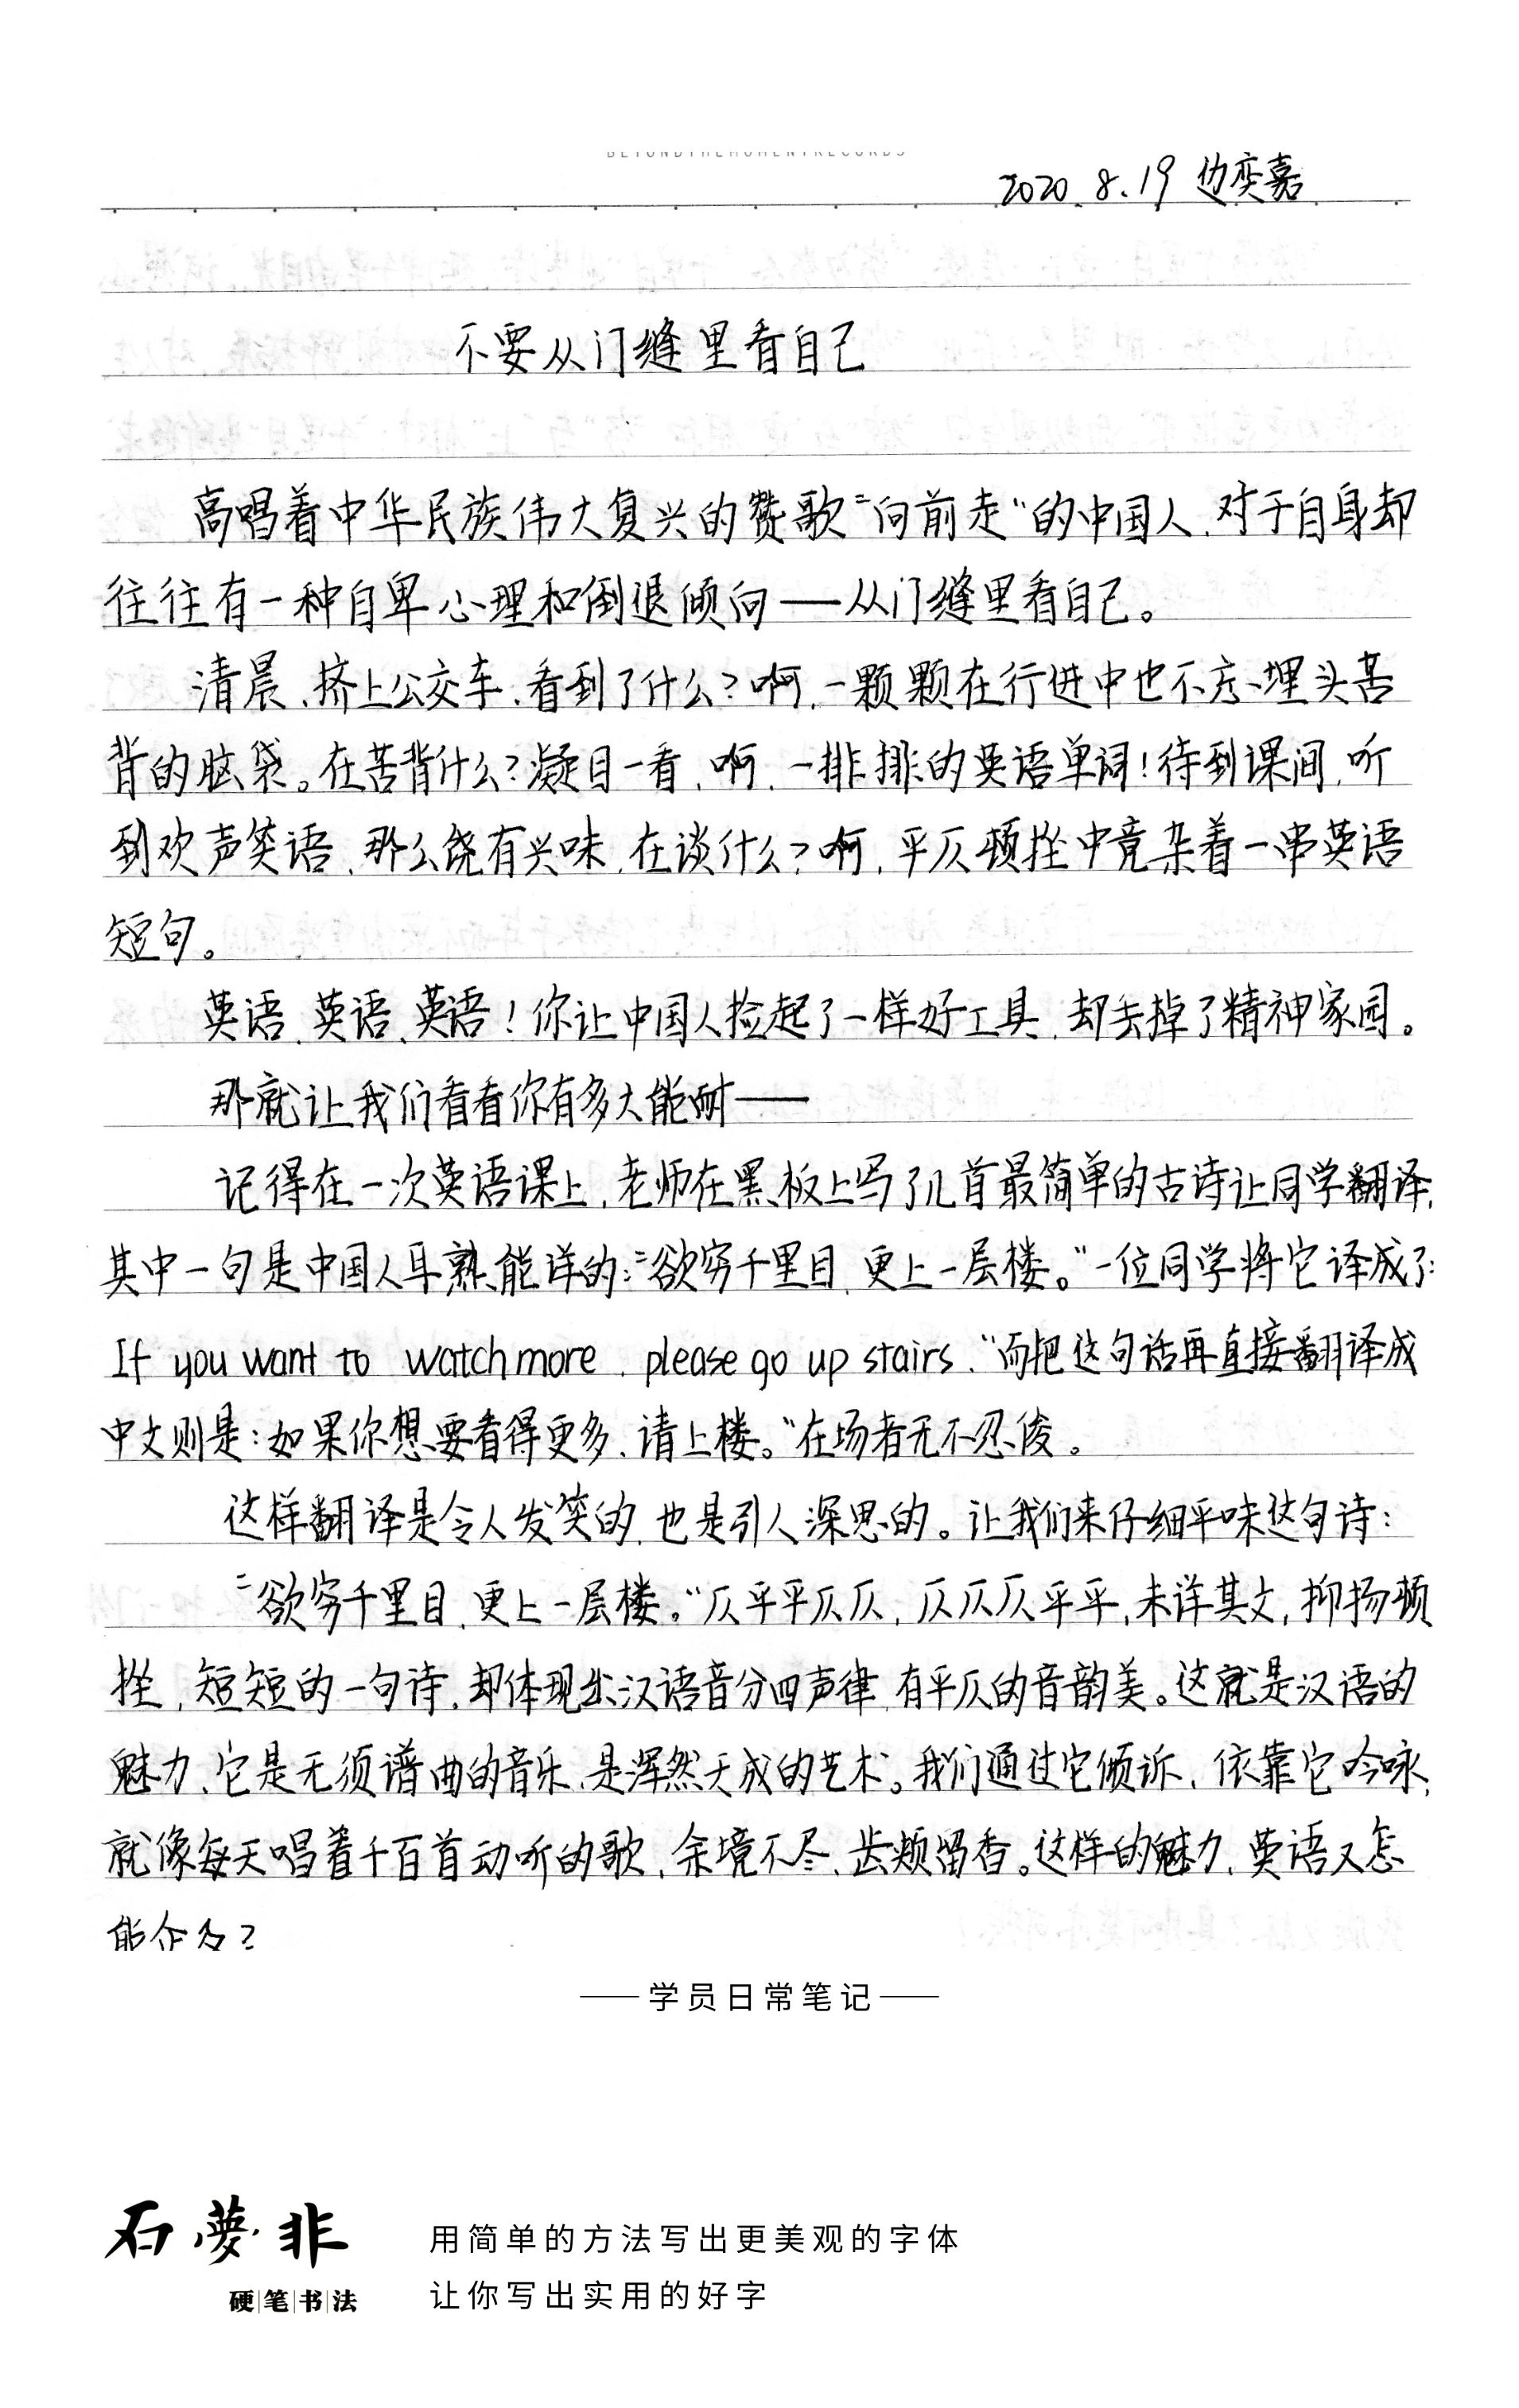 BEYONDTHEMOMENTRECORDS
2020.8.19 边奕嘉
不要从门缝里看自己
高唱着中华民族伟大复兴的赞歌“向前走”的中国人,对于自身却
往往有一种自卑心理和倒退倾向——从门缝里看自己。
清晨,挤上公交车,看到了什么?啊,一颗颗在行进中也不忘埋头苦
背的脑袋。在苦背什么?凝目一看,啊,一排排的英语单词!待到课间,听
到欢声笑语,那么饶有兴味,在谈什么?啊,平仄顿挫中竟杂着一串英语
短句。
英语,英语,英语!你让中国人捡起了一样好工具,却丢掉了精神家园。
那就让我们看看你有多大能耐——
记得在一次英语课上,老师在黑板上写了几首最简单的古诗让同学翻译,
其中一句是中国人耳熟能详的:“欲穷千里目,更上一层楼。”一位同学将它译成了:
If you want to watch more, please go up stairs.”而把这句话再直接翻译成
中文则是:如果你想要看得更多,请上楼。”在场者无不忍俊。
这样翻译是令人发笑的,也是引人深思的。让我们来仔细平味这句诗:
“欲穷千里目,更上一层楼。”仄平平仄仄,仄仄仄平平,未详其文,抑扬顿
挫,短短的一句诗,却体现出汉语音分四声律,有平仄的音韵美。这就是汉语的
魅力,它是无须谱曲的音乐,是浑然天成的艺术。我们通过它倾诉,依靠它吟咏,
就像每天唱着千百首动听的歌,余境不尽,齿颊留香。这样的魅力,英语又怎
能企及?
——学员日常笔记——
石夢非
硬笔书法
用简单的方法写出更美观的字体
让你写出实用的好字